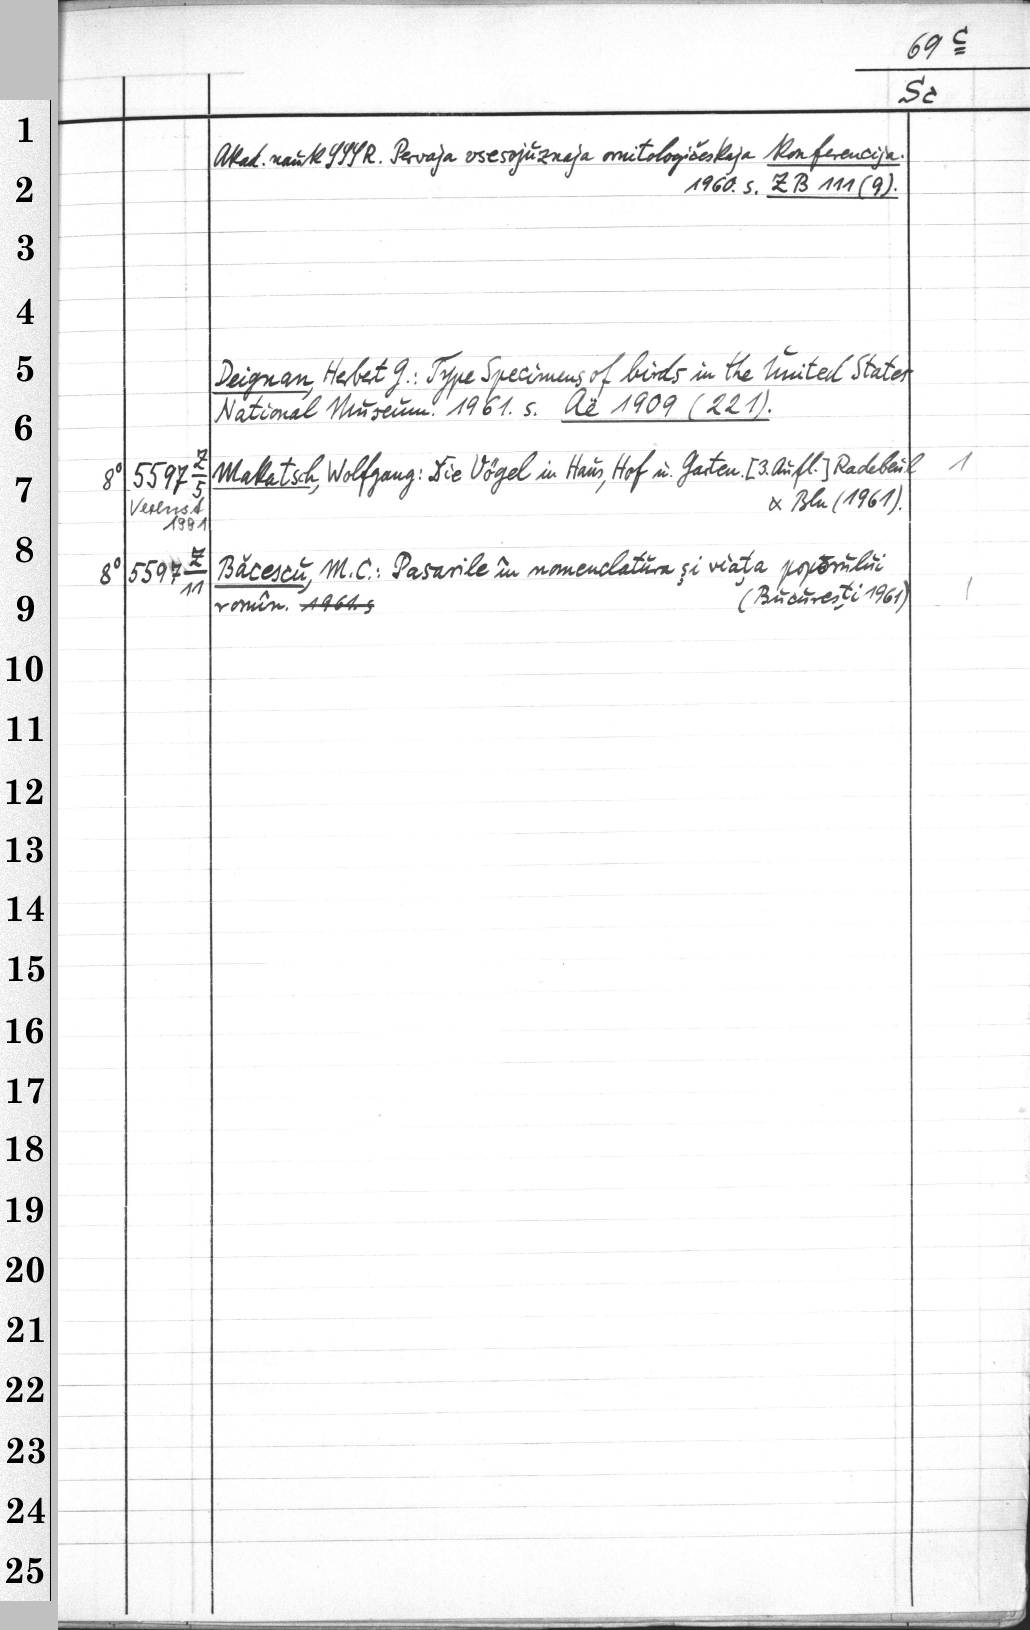 69 c
Sc
1
Akad. nauk SSSR. Pervaja vsesojuznaja ornitologičeskaja Konferencija.
2
1960. s. ZB 111 (9).
3
4
5
Deignan, Herbert G.: Type Specimens of birds in the United States
6
National Museum. 1961. s. Aë 1909 (221).
7
8° 5597 Z/5 Makatsch, Wolfgang: Die Vögel in Haus, Hof u. Garten. [3. Aufl.] Radebeul 1
Verlust & Bln (1961).
1991
8
8° 5597 Z/11 Băcescu, M.C.: Pasarile în nomenclatura și viața poporului
9
romîn. 1961. s (București 1961) 1
10
11
12
13
14
15
16
17
18
19
20
21
22
23
24
25